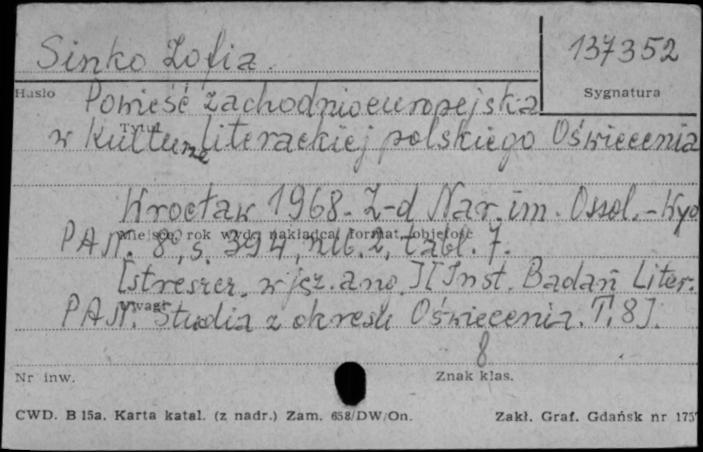 Sinko Zofia.
137352
Hasło
Sygnatura
Powieść zachodnioeuropejska
Tytuł
w kulturze literackiej polskiego Oświecenia
Wrocław 1968. Z-d Nar. im. Ossol. - Wyd
Miejsce, rok wyd., nakładca, format, objętość
PAN. 8°, s. 394, nlb. 2, tabl. 7.
[streszcz. w jęz. ang.] [Inst. Badań Liter.
Uwagi
PAN. Studia z okresu Oświecenia. T. 8].
8
Nr inw.
Znak klas.
CWD. B 15a. Karta katal. (z nadr.) Zam. 658/DW/On.
Zakł. Graf. Gdańsk nr 175